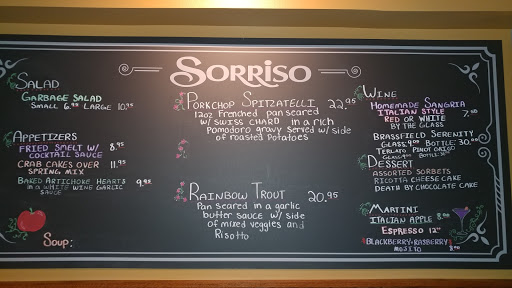 SORRISO
SALAD
GARBAGE SALAD
SMALL 6.95 LARGE 10.95
APPETIZERS
FRIED SMELT W/ 8.95
COCKTAIL SAUCE
CRAB CAKES OVER 11.95
SPRING MIX
BAKED ARTICHOKE HEARTS 9.95
IN A WHITE WINE GARLIC
SAUCE
SOUP:
PORKCHOP SPITZATELLI 22.95
12oz Frenched pan seared
w/ SWISS CHARD in a rich
Pomodoro gravy Served w/ side
of roasted Potatoes
RAINBOW TROUT 20.95
Pan seared in a garlic
butter sauce w/ side
of mixed veggies and
Risotto
WINE
HOMEMADE SANGRIA
ITALIAN STYLE
RED OR WHITE 7.00
BY THE GLASS
BRASSFIELD SERENITY
GLASS: 9.00 BOTTLE: 30.00
TERLATO PINOT GRIGIO
GLASS: 9.00 BOTTLE: 30.00
DESSERT
ASSORTED SORBETS
RICOTTA CHEESE CAKE
DEATH BY CHOCOLATE CAKE
MARTINI
ITALIAN APPLE 8.00
ESPRESSO 12.00
BLACKBERRY + RASPBERRY 8.00
MOJITO